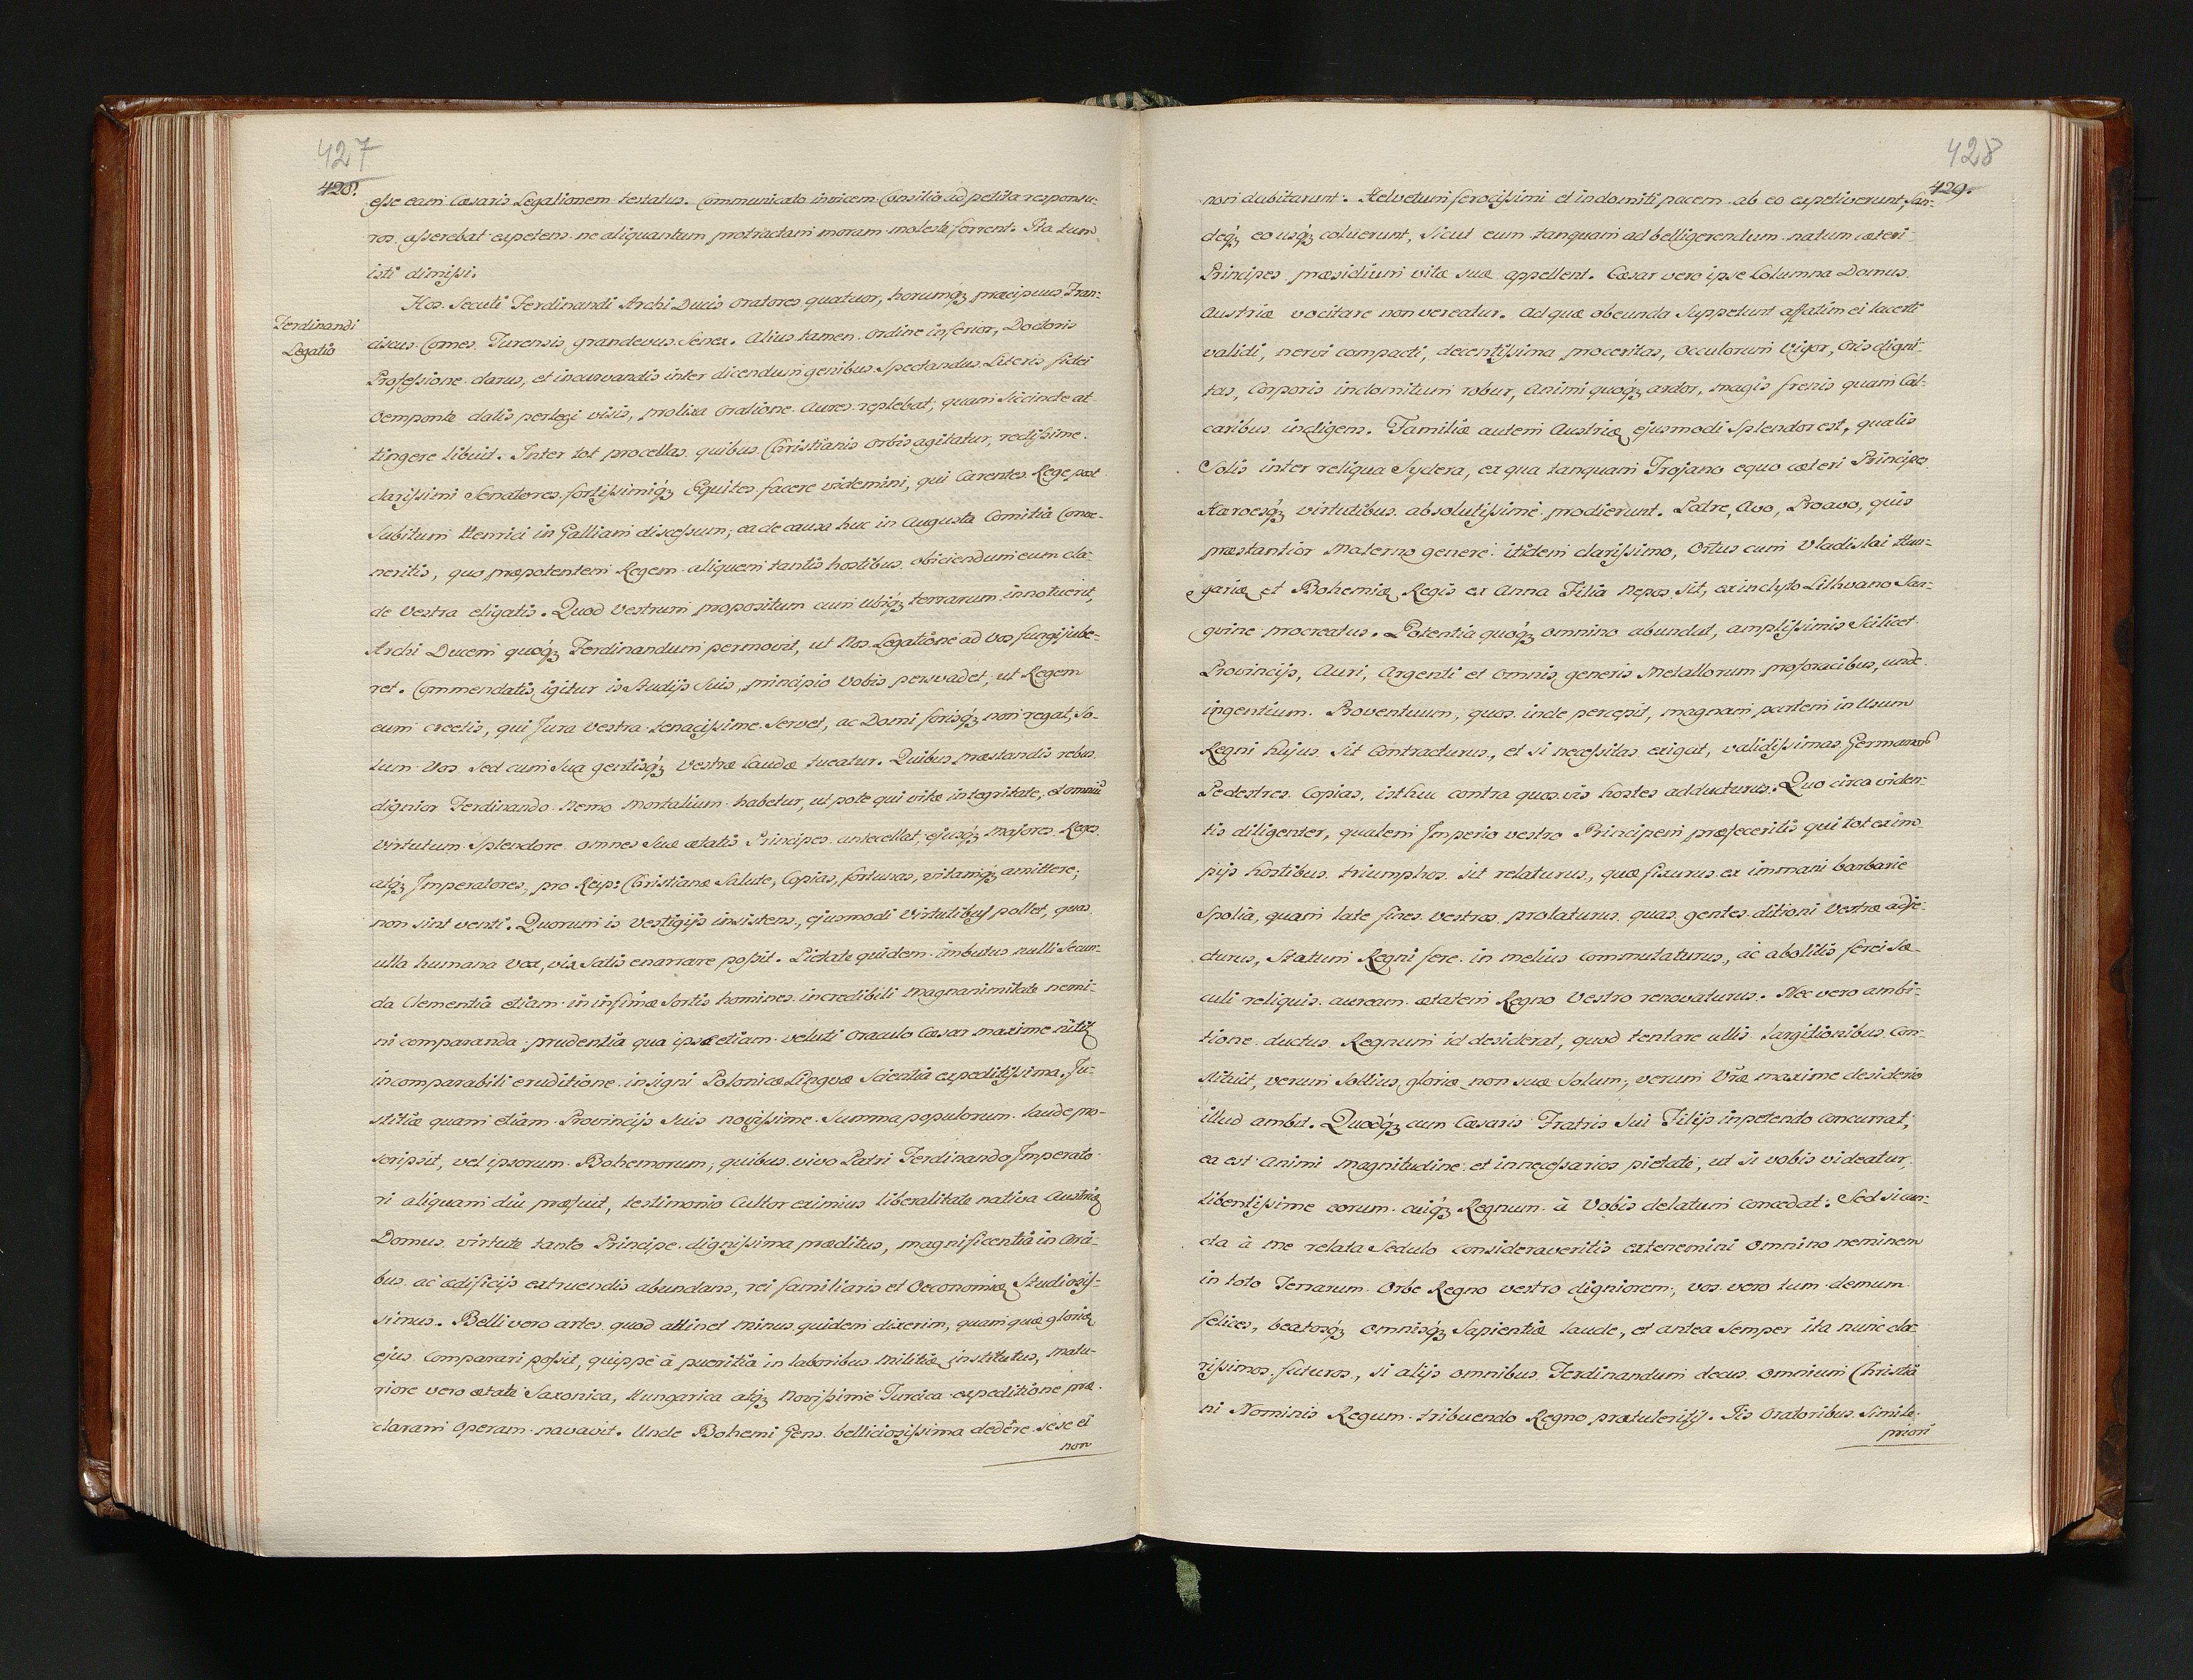 427
428.
esse eam Cæsaris Legationem testatus. Communicato invicem Consilio ad petita responsu-
ros asserebat expetens ne aliquantum protractam moram moleste ferrent. Ita tum
isti dimissi.
Hos Secuti Ferdinandi Archi Ducis oratores quatuor, horumq́ꝫ præcipuus Fran-
Ferdinandi
Legatio
ciscus Comes Turensis grandevus Senex. Alius tamen ordine inferior, Doctoris
Professione clarus, et incurvandis inter dicendum genibus Spectandus Literis fidei
Oemponte datis perlegi visis, prolixa oratione aures replebat, quam Siccincte at-
tingere libuit. Inter tot procellas quibus Christianis Orbis agitatur, rectissime
clarissimi Senatores fortissimiq́ꝫ Equites facere videmini, qui Carentes Rege post
Subitum Henrici in Galliam discessum, ea de causa huc in Augusta Comitia Conve-
neritis, quo præpotentem Regem aliquem tantis hostibus obiciendum eum cla-
de Vestra eligatis. Quod Vestrum propositum cum Ubiq́ꝫ terrarum innotuerit,
Archi Ducem quoq́ꝫ Ferdinandum permovit, ut Nos Legatione ad vos fungi jube-
ret. Commendatis igitur is Studijs Suis, principio Vobis persvadet, ut Regem
eum creetis, qui Jura Vestra tenacissime Servet, ac Domi forisq́ꝫ non regat, So-
lum Vos sed cum Sua gentisq́ꝫ Vestræ laude tueatur. Quibus præstandis rebus
dignior Ferdinando Nemo Mortalium habetur, ut pote qui vitæ integritate, et omniū
virtutum Splendore omnes Suæ ætatis Principes antecellat, ejusq́ꝫ Majores Reges
atq́ꝫ Imperatores, pro Reip: Christianæ Salute, Copias, fortunas, vitamq́ꝫ amittere,
non sint veriti. Quorum is Vestigijs insistens, ejusmodi Virtutibus pollet, quas
ulla humana Vox, vix Satis enarrare possit. Pietate quidem imbutus nulli Secun-
da Clementia etiam in infimæ Sortis homines incredibili Magnanimitate nemi-
ni comparanda prudentia qua ipse etiam veluti Oraculo Cæsar maxime nitit
incomparabili eruditione insigni Polonicæ Lingvæ Scientia expeditissima. Ju-
stitiæ quam etiam Provincijs Suis novissime Summa populorum laude præ-
scripsit, vel ipsorum Bohemorum, quibus vivo Patri Ferdinando Imperato-
ri aliquam diu præfuit, testimonio Cultor eximius liberalitate nativa Austriæ
Domus virtute tanto Principe dignissima præditus, magnificentia in Ora-
bus ac ædificijs extruendis abundans, rei familiaris et Oeconomiæ Studiosis-
simus. Belli vero artes quod attinet Minus quidem dixerim, quam quæ gloriæ
ejus Comparari possit, quippe à pueritia in laboribus Militiæ institutus, Matu-
riore vero ætate Saxonica, Hungarica atq́ꝫ Novissime Turcica expeditione præ-
claram Operam navavit. Unde Bohemi Gens belliciosissima dedêre sese ei
non
428
429.
non dubitarunt. Helvetum ferocissimi et indomiti pacem ab eo expetiverunt, San-
deq́ꝫ eo usq́ꝫ coluerunt, Sicut eum tanquam ad belligerendum natum cæteri
Principes præsidium vitæ suæ appellent. Cæsar vero ipse Columna Domus
Austriæ vocitare non vereatur. Ad quæ obeunda Suppetunt affatim ei lacerti
validi, nervi compacti, decentissima proceritas, Occulorum Vigor, Oris digni-
tas, Corporis indomitum robur, Animi quoq́ꝫ ardor, Magis frenis quam Cal-
caribus indigens. Familiæ autem Austriæ ejusmodi Splendor est, qualis
Solis inter reliqua Sydera, ex qua tanquam Trojano equo cæteri Principes
Hæroesq́ꝫ virtutibus absolutissime prodierunt. Patre, Avo, Proavo, quis
præstantior Materno genere itidem clarissimo, Ortus cum Vladislai Hun-
gariæ et Bohemiæ Regis ex Anna Filia Nepos Sit, ex inclyto Lithvano San-
gvine procreatus. Potentia quoq́ꝫ omnino abundat, amplissimis Scilicet
Provincijs, Auri, Argenti et Omnis generis Metallorum proferacibus, unde
ingentium Proventuum, quos inde percepit, magnam partem in Usum
Regni hujus Sit Contracturus, et si necessitas exigat, validissimas Germanorum
Pedestres Copias, isthuc contra quos vis hostes adducturus. Quo circa viden-
tis diligenter, qualem Imperio vestro Principem præfeceritis qui tot ex im-
pijs hostibus triumphos sit relaturus, quæ fixurus ex immani barbarie
Spolia, quam late fines Vestros prolaturus quas gentes ditioni Vestræ adje-
cturus, Statum Regni fere in melius Commutaturus, ac abolitis ferei Sæ-
culi reliquis auream ætatem Regno Vestro renovaturus. Nec vero ambi-
tione ductus Regnum id desiderat, quod tentare ullis Largitionibus Con-
stituit, verum Sollius gloriæ non suæ Solum, verum Vr̃æ maxime desiderio
illud ambit. Quodq́ꝫ cum Cæsaris Fratris Sui Filijs in petendo Concurrat,
ea est Animi Magnitudine et in necessarios pietate, ut si vobis videatur,
libentissime eorum cuiq́ꝫ Regnum à Vobis delatum Concedat. Sed si cun-
cta à me relata Sedulo Consideraveritis extenemini Omnino neminem
in toto Terrarum Orbe Regno vestro digniorem, vos vero tum demum
felices, beatosq́ꝫ omnisq́ꝫ Sapientiæ laude, et antea Semper ita nunc cla-
rissimos futuros, si alijs omnibus Ferdinandum decus omnium Christia-
ni Nominis Regum tribuendo Regno prætuleritis. Jis Oratoribus Simile
priori